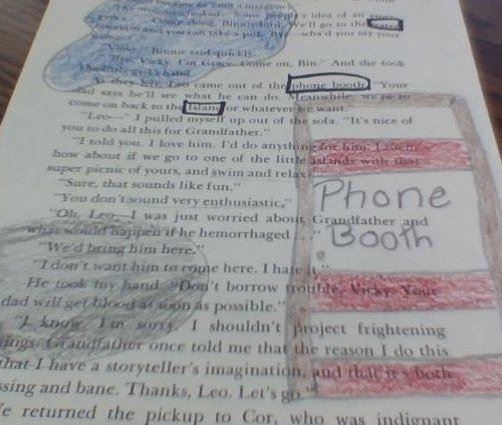 The wolf looked. "Some people's idea of an
Come along, Binnie, Bin. We'll go to the
and you can take a pill. Bye, what'd you say your
"Vicky," Binnie said quickly.
"Bye, Vicky. I'm Grace. Come on, Bin." And she took
hand.
As they left, Leo came out of the phone booth. "Your
dad says he'll see what he can do. Meanwhile, we're to
come on back to the Island or whatever we want."
"Leo—" I pulled myself up out of the sofa. "It's nice of
you to do all this for Grandfather."
"I told you. I love him. I'd do anything for him. Listen,
how about if we go to one of the little islands with that
super picnic of yours, and swim and relax?"
"Sure, that sounds like fun."
"You don't sound very enthusiastic."
"Oh, Leo—I was just worried about Grandfather and
what would happen if he hemorrhaged . . ."
"We'd bring him here."
"I don't want him to come here. I hate it."
He took my hand. "Don't borrow trouble, Vicky. Your
dad will get blood as soon as possible."
"I know. I'm sorry. I shouldn't project frightening
things. Grandfather once told me that the reason I do this
that I have a storyteller's imagination, and that it's both
ssing and bane. Thanks, Leo. Let's go."
e returned the pickup to Cor, who was indignant
Phone
Booth